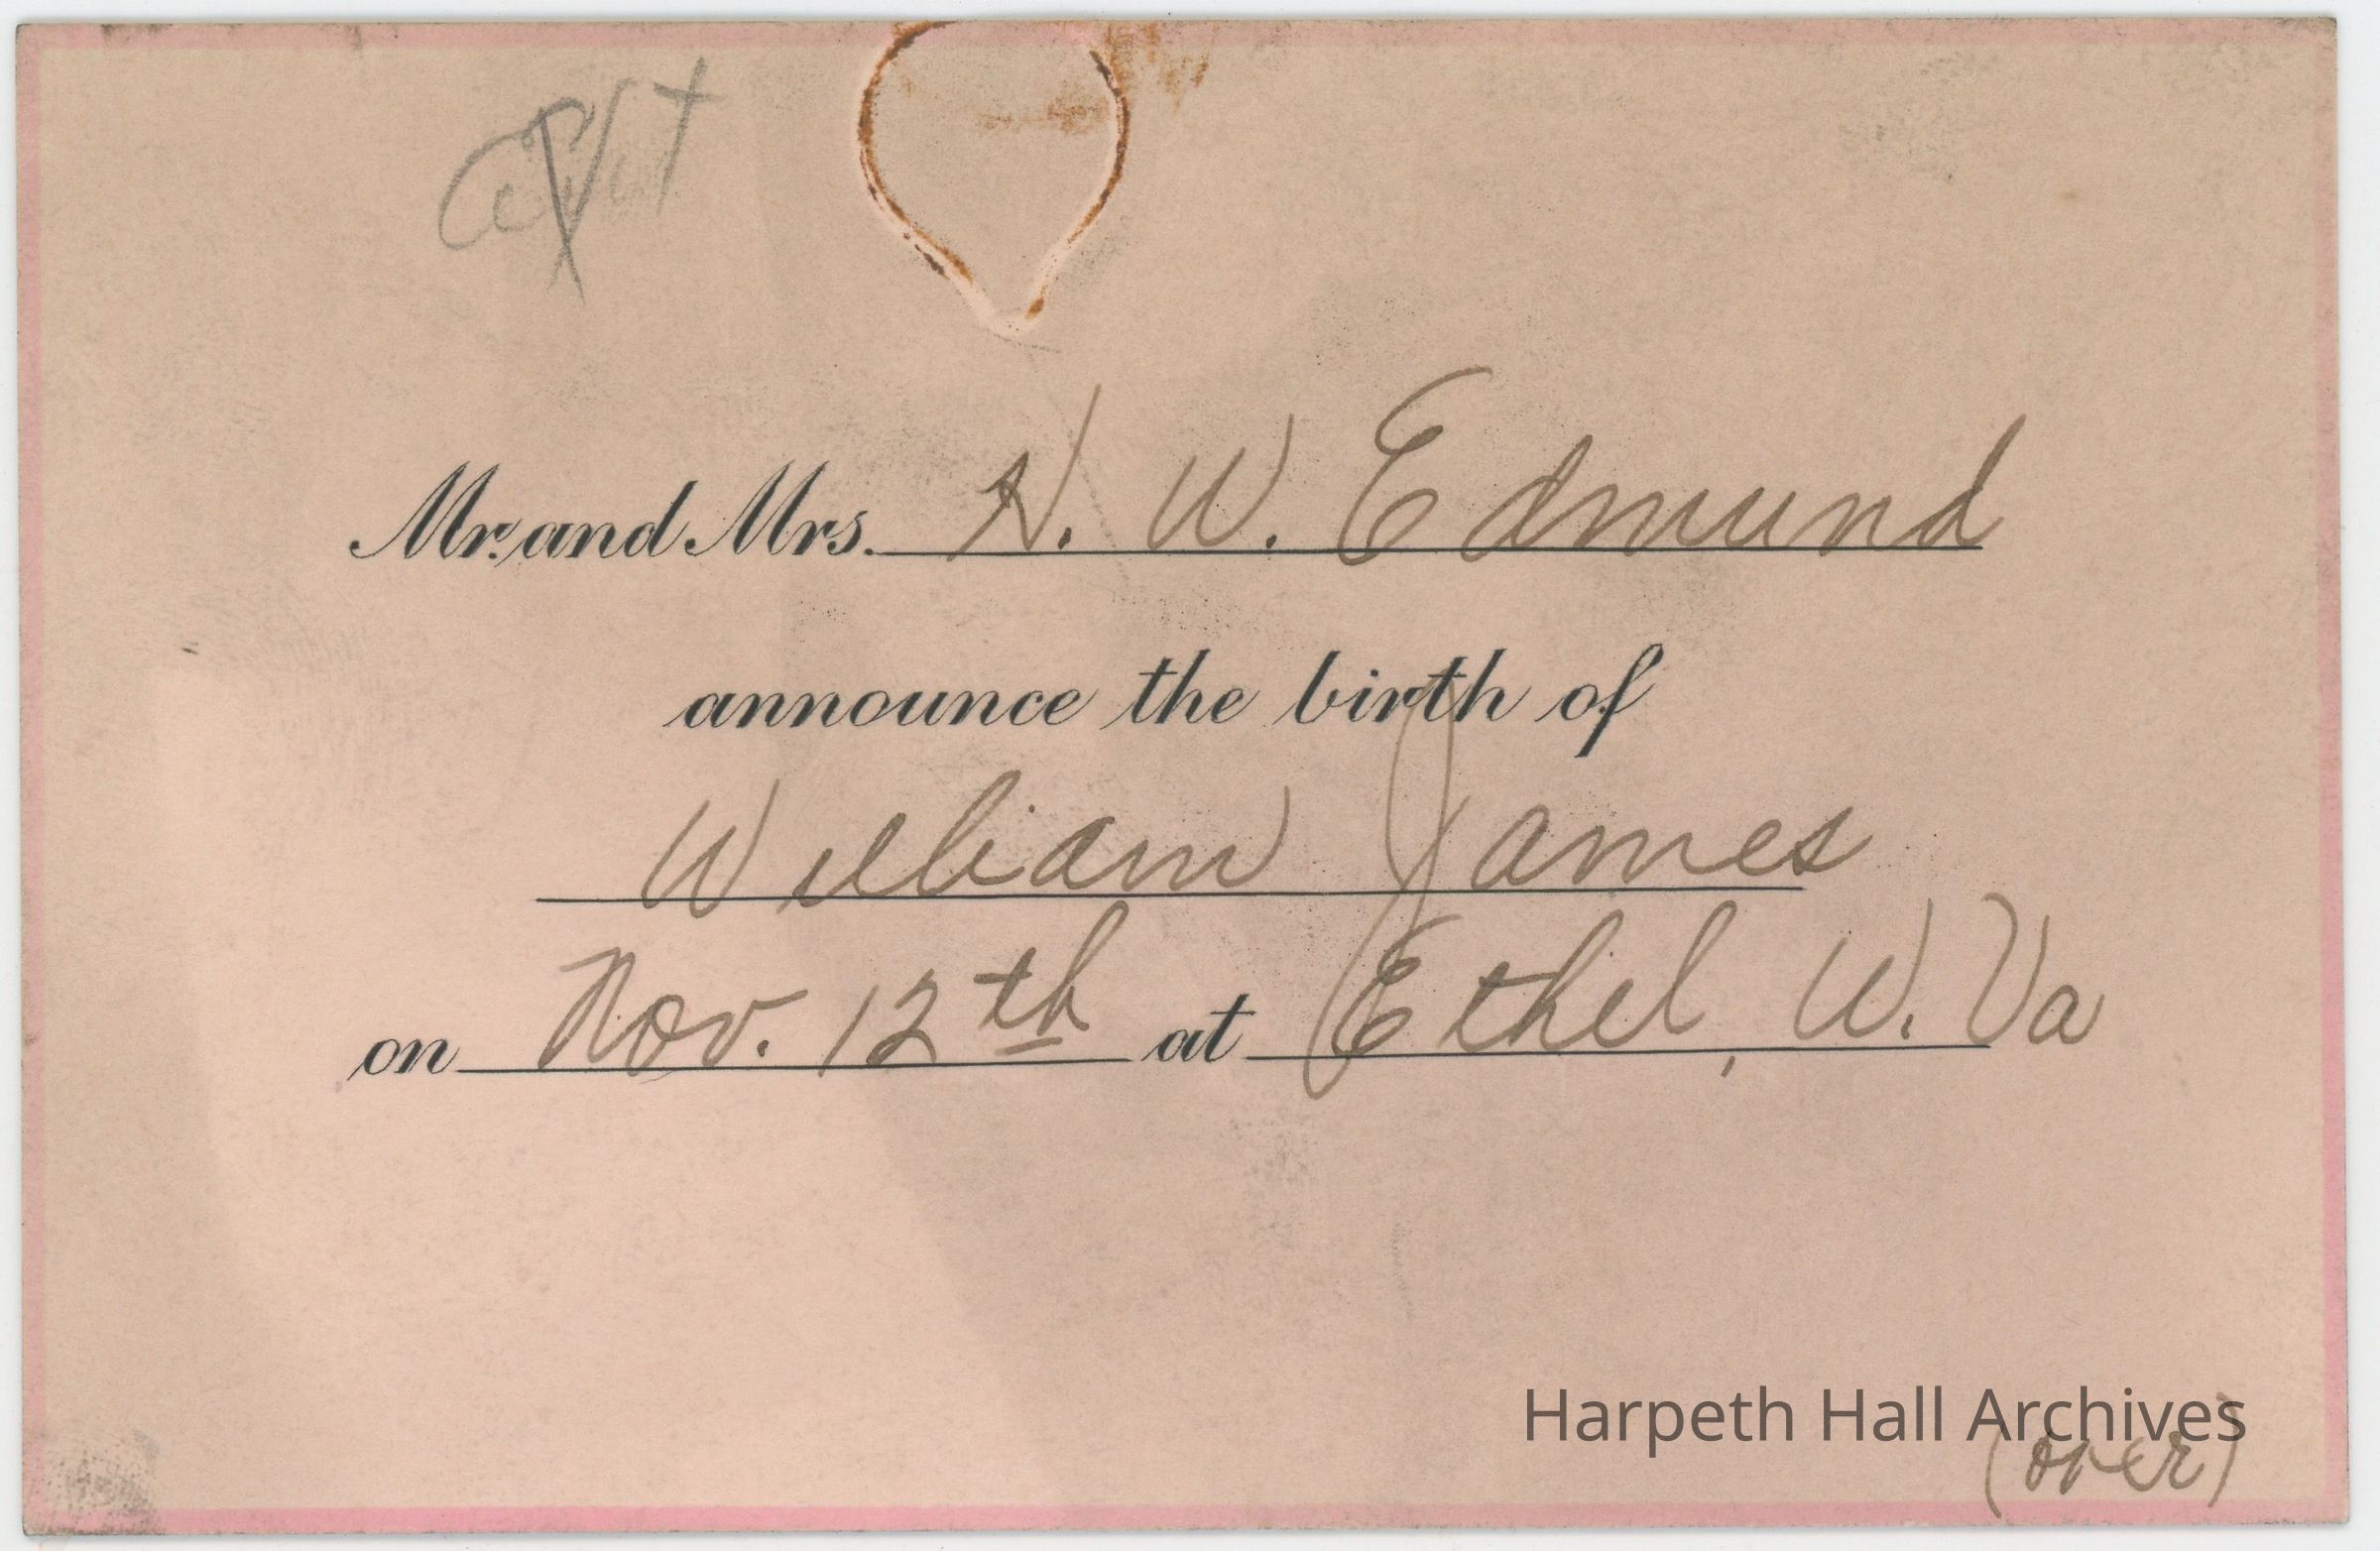 Mr. and Mrs. H. W. Edmund
announce the birth of
William James
on Nov. 12th at Ethel, W. Va
Harpeth Hall Archives
(over)